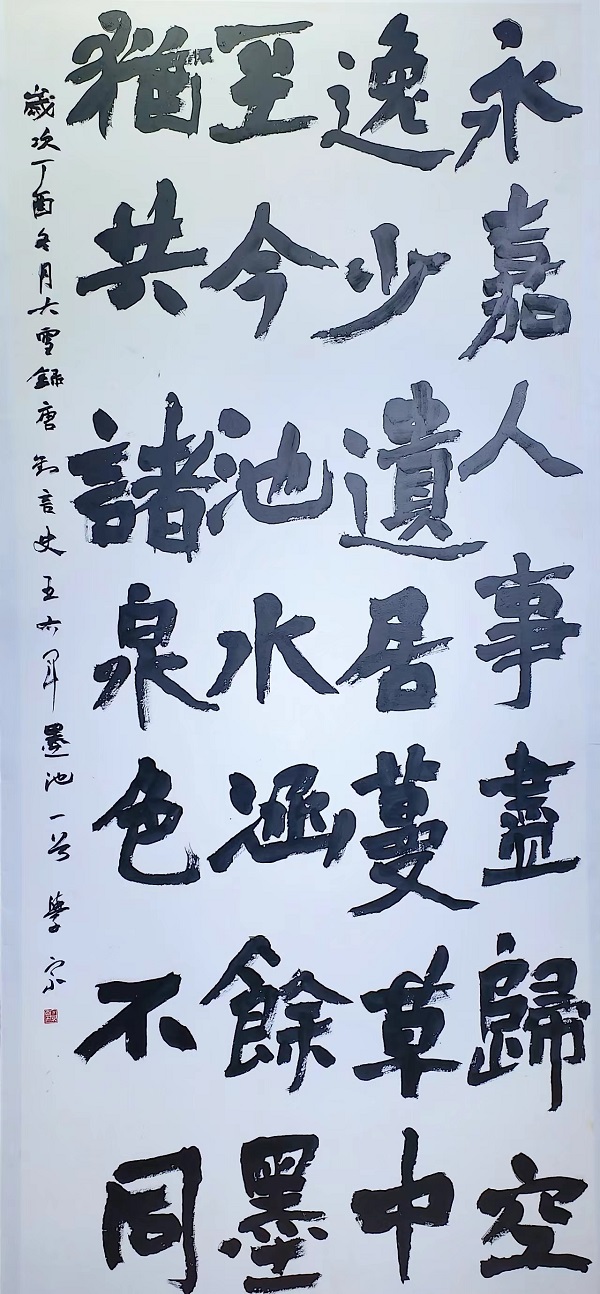 永嘉人事盡歸空
逸少遺居蔓草中
至今池水涵餘墨
猶共諸泉色不同
歲次丁酉冬月大雪錄唐劉言史王右軍墨池一首 學宗